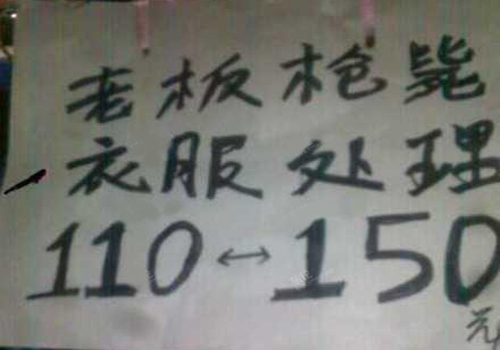 老板枪毙
衣服处理
110↔150
元